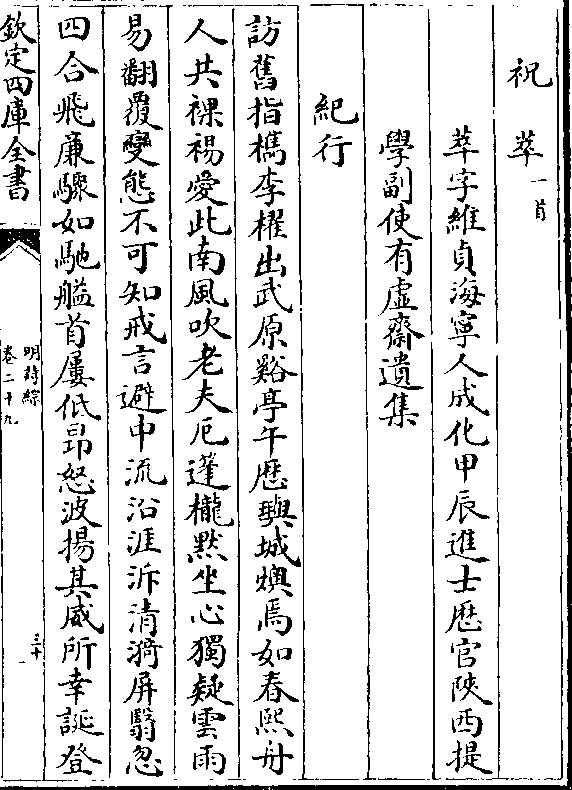 祝萃一首
萃字維貞海寧人成化甲辰進士歷官陜西提
學副使有虛齋遺集
紀行
訪舊指檇李櫂出武原谿亭午歷輿城燠焉如春熙舟
人共裸裼愛此南風吹老夫厄蓬櫳黙坐心獨疑雲雨
易翻覆變態不可知戒言避中流沿涯泝清漪屏翳忽
四合飛廉驟如馳艦首屢低昂怒波揚其威所幸誕登
欽定四庫全書
明詩綜
卷二十九
三十